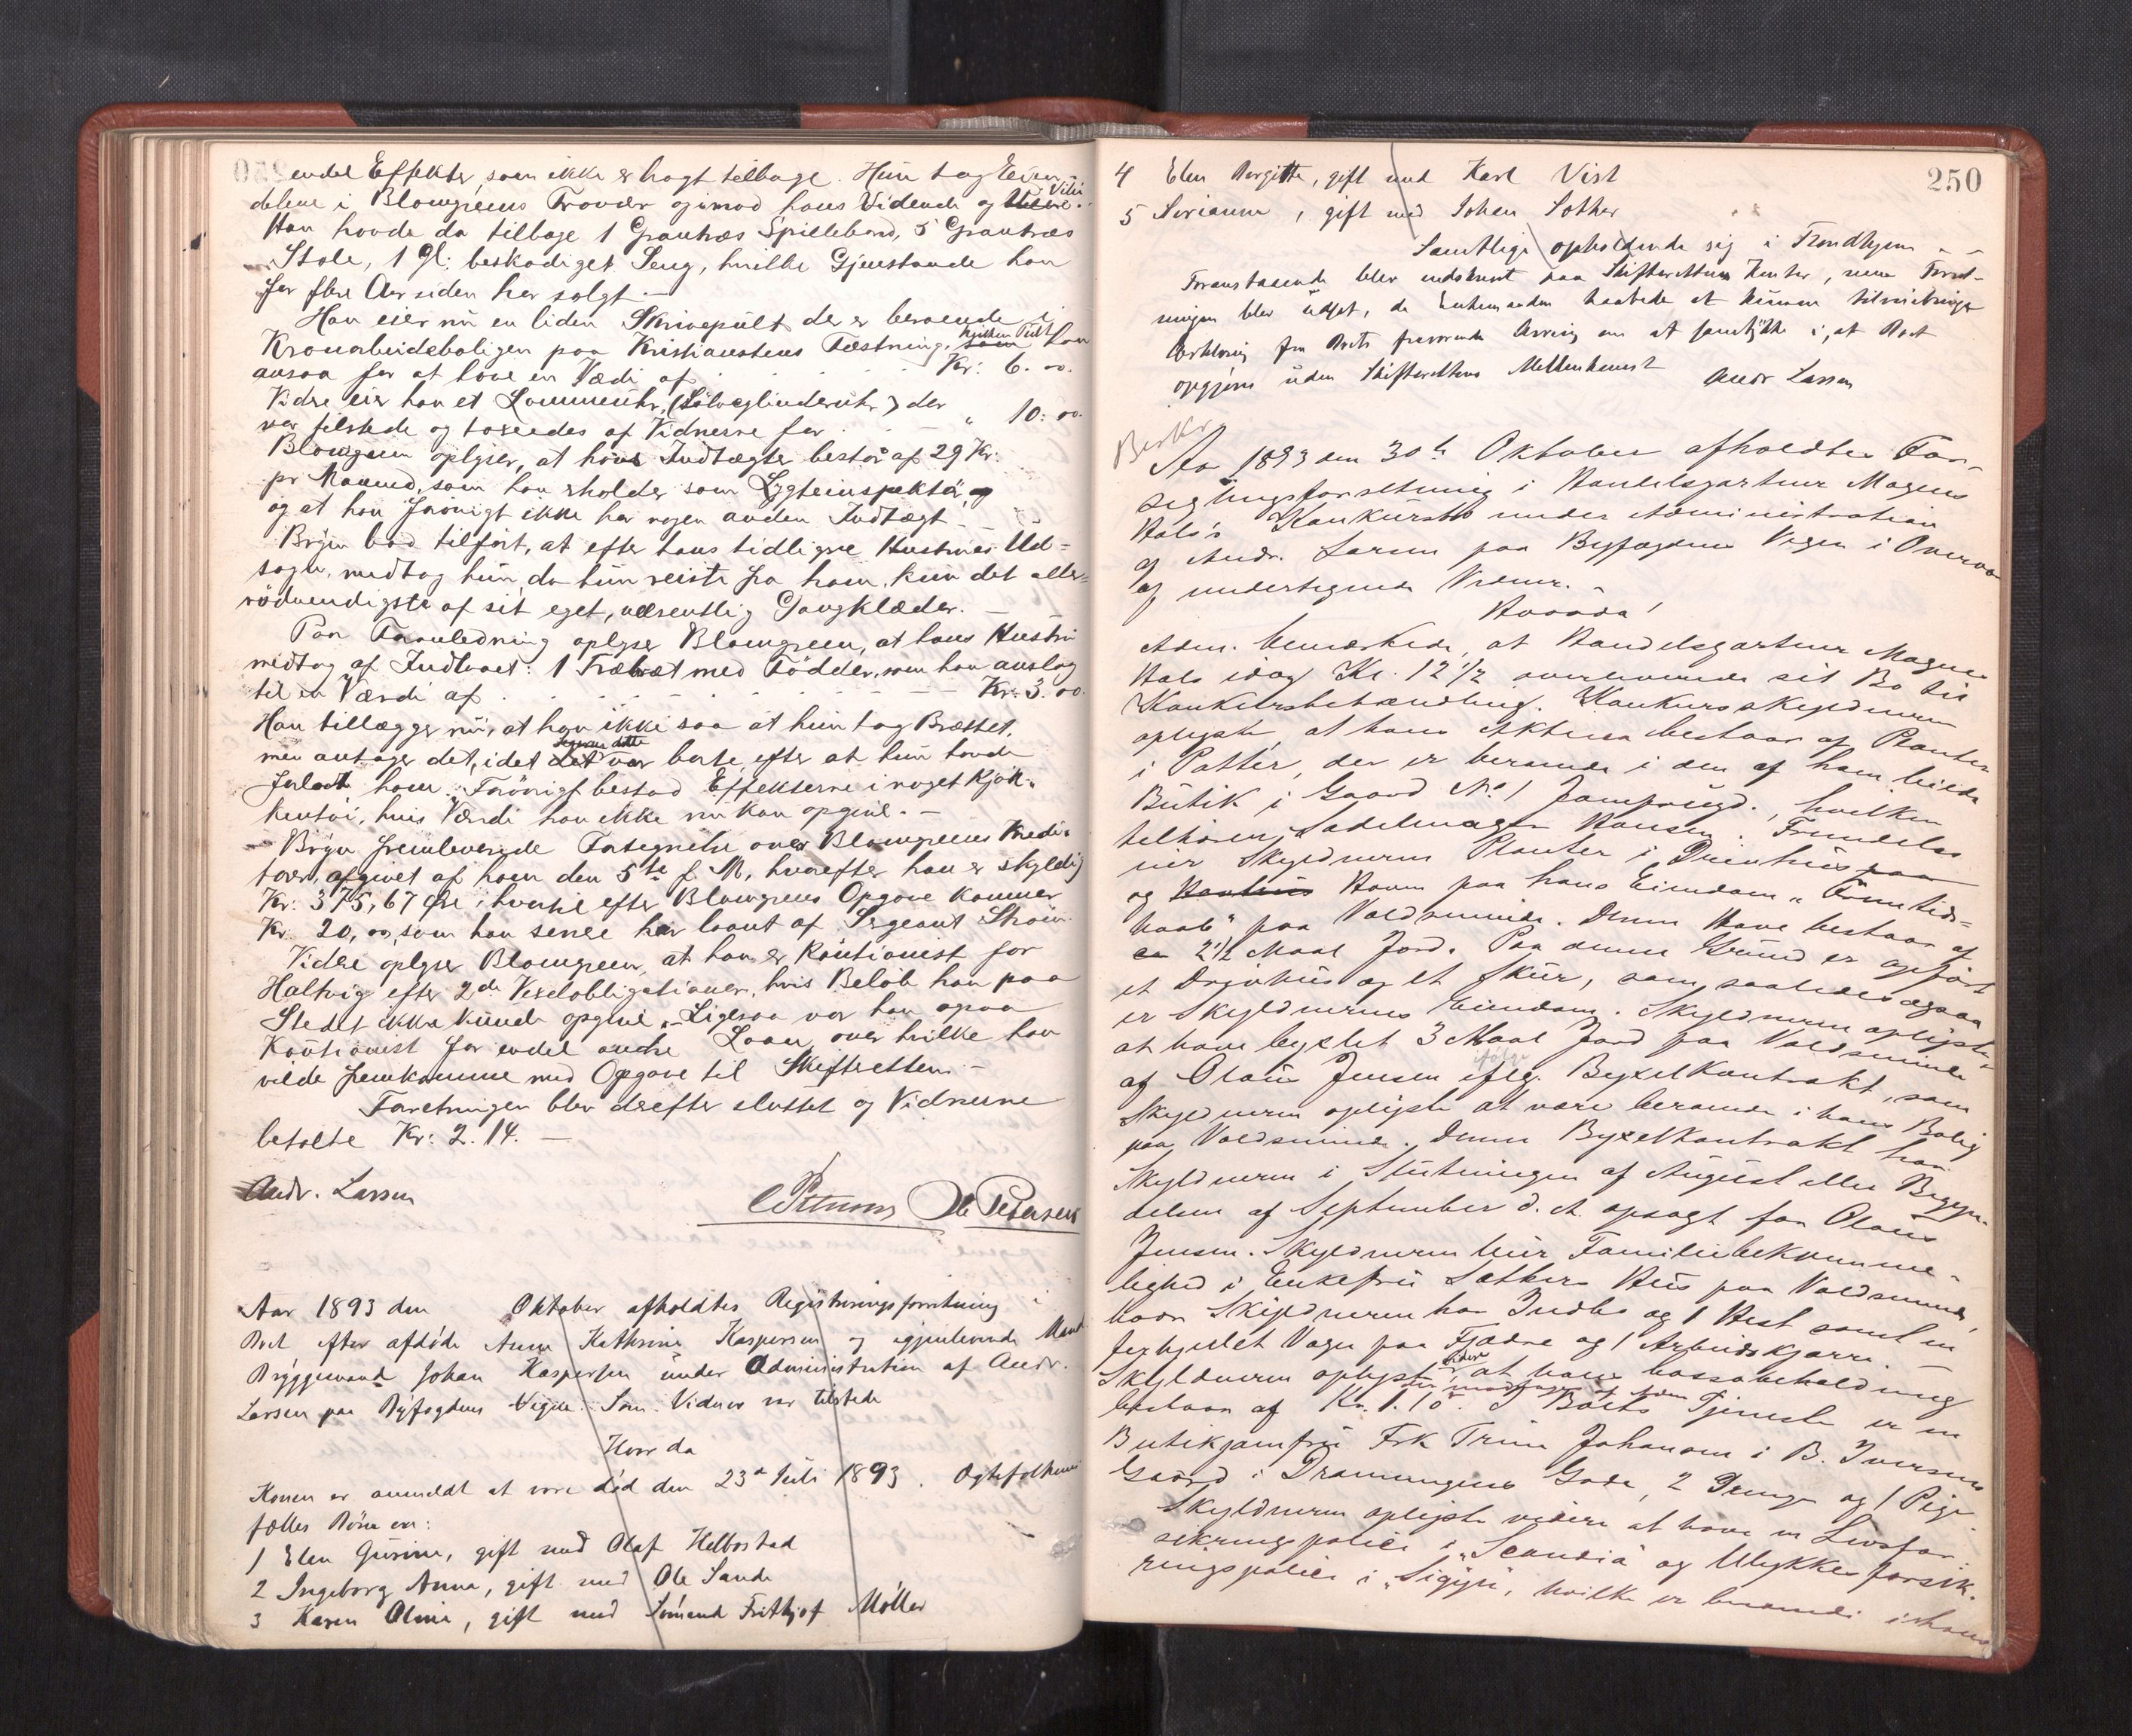 endel Effekter, som ikke er bragt tilbage. Hun tog Eien-
delene i Blomgreens Fravær og imod hans Vidende og Villie.
Han havde da tilbage 1 Grantræs Spillebord, 5 Grantræs
Stole, 1 gl: beskadiget Seng, hvilke Gjenstande han
for flere Aar siden har solgt. —
Han eier nu en liden Skrivepult, der er beroende i
Kronarbeideboligen paa Kristianstens Fæstning, hvilken Pult han
ansaa for at have en Værdi af . . . . . . Kr: 6. 00.
Videre eier han et Lommeuhr, (Sølvcylinderuhr) der
var tilstede og taxeredes af Vidnerne for . . — " 10: 00.
Blomgreen oplyser, at hans Indtægter bestaar af 29 Kr:
pr Maaned, som han erholder som Lygteinspektør,
og at han forøvrigt ikke har nogen anden Indtægt. —
Bryn bad tilført, at efter hans tidligere Hustrues Ud-
sagn, medtog hun, da hun reiste fra ham, kun det aller-
nødvendigste af sit eget, væsentlig Gangklæder. —
Paa Foranledning oplyser Blomgreen, at hans Hustru
medtog af Indboet: 1 Træbræt med Fødder, som han anslog
til en Værdi af . . . . . . — — — Kr: 3. 00
Han tillægger nu, at han ikke saa at hun tog Brættet,
men antager det, idet det var borte, efter at hun havde
forladt ham. Forøvrigt bestod Effekterne i noget Kjøk-
kentøi, hvis Værdi han ikke nu kan opgive. —
Bryn fremleverede Fortegnelse over Blomgreens Kredi-
torer, afgivet af ham den 5te f. M, hvorefter han er skyldig
Kr: 375,67 Øre, hvortil efter Blomgreens Opgave kommer
Kr 20,00, som han senere har laant af Sergeant Strøm.
Videre oplyser Blomgreen, at han er Kautionist for
Haltvig efter 2de Vexelobligationer, hvis Beløb han paa
Stedet ikke kunde opgive. — Ligesaa var han ogsaa
Kautionist for endel andre Laan, over hvilke han
vilde fremkomme med Opgave til Skifteretten. —
Forretningen blev derefter sluttet og Vidnerne
betalte Kr: 2. 14. —
Andr. Larsen
Petersen Ole Pedersen
Aar 1893 den Oktober afholdtes Registreringsforretning i
Boet efter afdøde Anne Kathrine Kaspersen og igjenlevende Mand
Bryggemand Johan Kaspersen under Administration af Andr.
Larsen paa Byfogdens Vegne. Som Vidner var tilstede
Hvor da
Konen er anmeldt at være død den 23de Juli 1893. Ægtefolkenes
fælles Børn er:
1 Elen Gurine, gift med Olaf Helbostad
2 Ingeborg Anna, gift med Ole Sande
3 Karen Oline, gift med Sømand Frithjof Møller
250
4 Elen Bergitte, gift med Karl Vist
5 Serianna, gift med Johan Sother
Samtlige opholdende sig i Trondhjem — —
Foranstaaende blev indskrevet paa Skifterettens Kontor, men Forret-
ningen blev udsat, da Enkemanden haabede at kunne tilveiebringe
Erklæring fra Boets fraværende Arving om at samtykke i, at Boet
opgjøres uden Skifterettens Mellemkomst
Andr Larsen
Aar 1893 den 30te Oktober afholdtes For-
seglingsforretning i Handelsgartner Magnus
Hals's Konkursbo under Administration
af Andr. Larsen paa Byfogdens Vegne i Overvær
af undertegnede Vidner. —
Hvorda!
Adm. bemærkede, at Handelsgartner Magnus
Hals idag Kl. 12 1/2 overleverede sit Bo til
Konkursbehandling. Konkursskyldneren
oplyste, at hans Aktiva bestaar af Planter
i Potter, der er beroende i den af ham leiede
Butik i Gaard No 1 Jomfrugd., hvilken
tilhører Sadelmager Hansen. Fremdeles
eier Skyldneren Planter i Drivhus
og Haven paa hans Eiendom "Fremtids-
haab" paa Voldsminde. Denne Have bestaar af
ca 2 1/2 Maal Jord. Paa denne Grund er opført
et Drivhus og et Skur, som saaledes ogsaa
er Skyldnerens Eiendom. Skyldneren oplyste
at have bygslet 3 Maal Jord paa Voldsminde
af Olaus Jensen iflg. Bygselkontrakt, som
Skyldneren oplyste at være beroende i hans Bolig
paa Voldsminde. Denne Bygselkontrakt har
Skyldneren i Slutningen af August eller Begyn-
delsen af September d. A. opsagt for Olaus
Jensen. Skyldneren leier Familiebekvemme-
lighed i Enkefru Sathers Hus paa Voldsminde,
hvor Skyldneren har Indbo og 1 Hest samt en
firhjulet Vogn paa Fjædre og 1 Arbeidskjærre. —
Skyldneren oplyste videre, at hans Kassabeholdning
bestaar af Kr. 1. 10. I Boets Tjeneste er en
Butikjomfru Frk Trine Johansen i B. Iversens
Gaard i Dronningens Gade, 2 Drenge og 1 Pige.
Skyldneren oplyste videre at have en Livsfor-
sikringspolice i "Scandia" og Ulykkesforsik-
ringspolice i "Sigyn", hvilke er beroende i hans